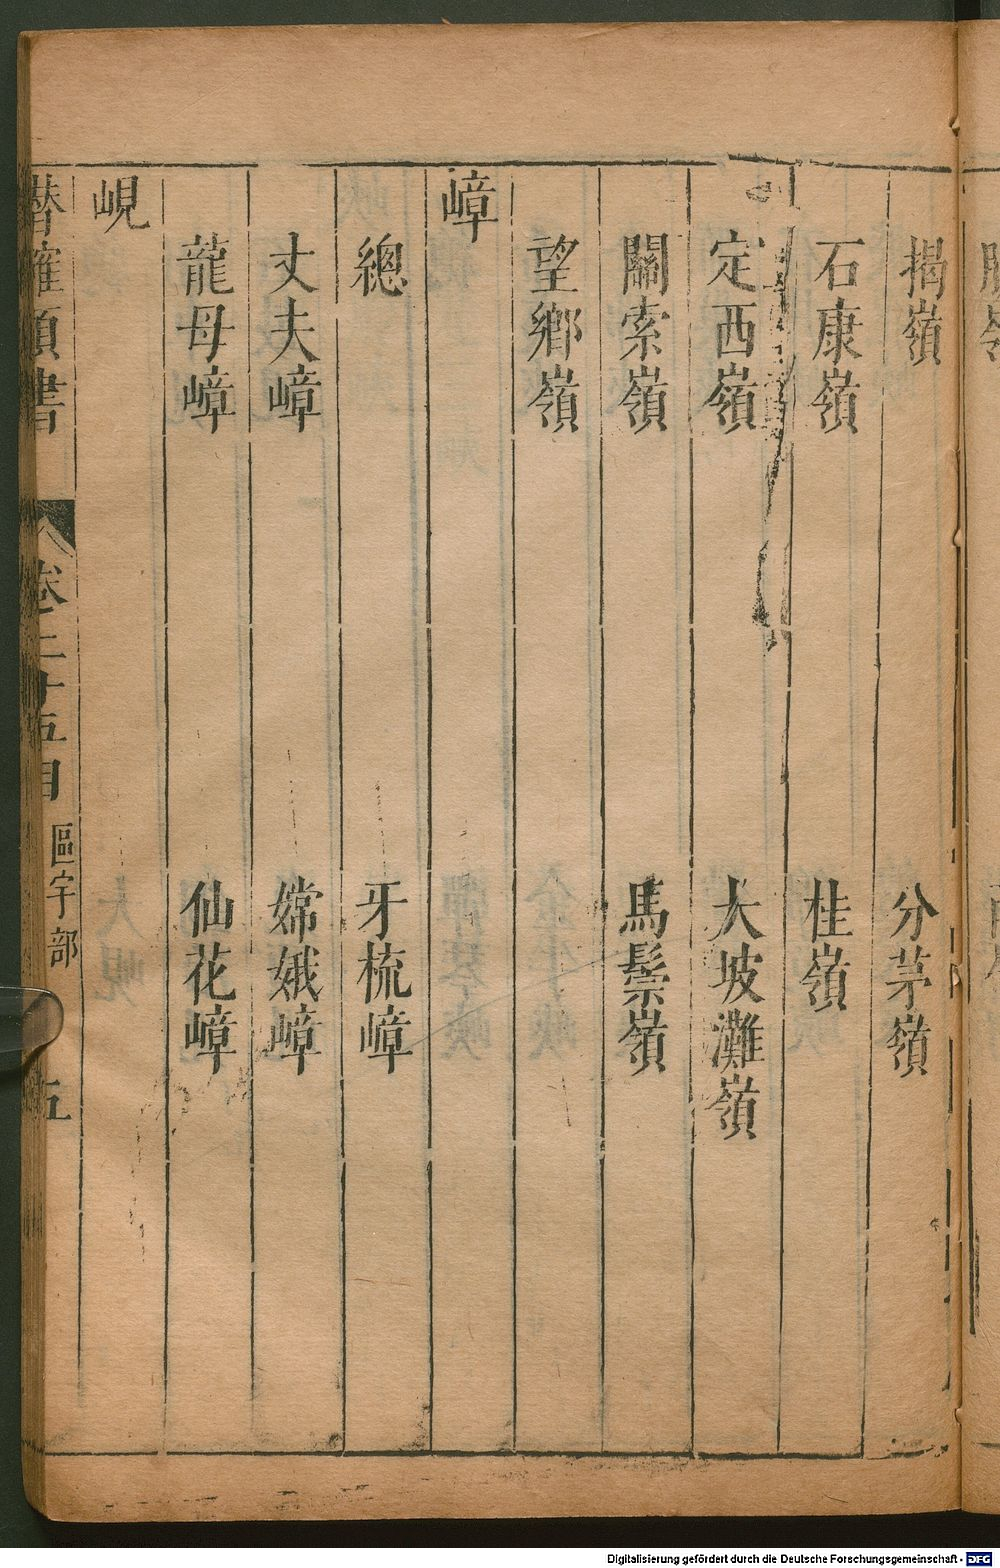 揭嶺 分茅嶺
石康嶺 桂嶺
定西嶺 大坡灘嶺
關索嶺 馬鬃嶺
望鄉嶺
嶂
總 牙梳嶂
丈夫嶂 嫦娥嶂
龍母嶂 仙花嶂
峴
潛確類書 卷二十五目 區宇部 五
Digitalisierung gefördert durch die Deutsche Forschungsgemeinschaft - DFG